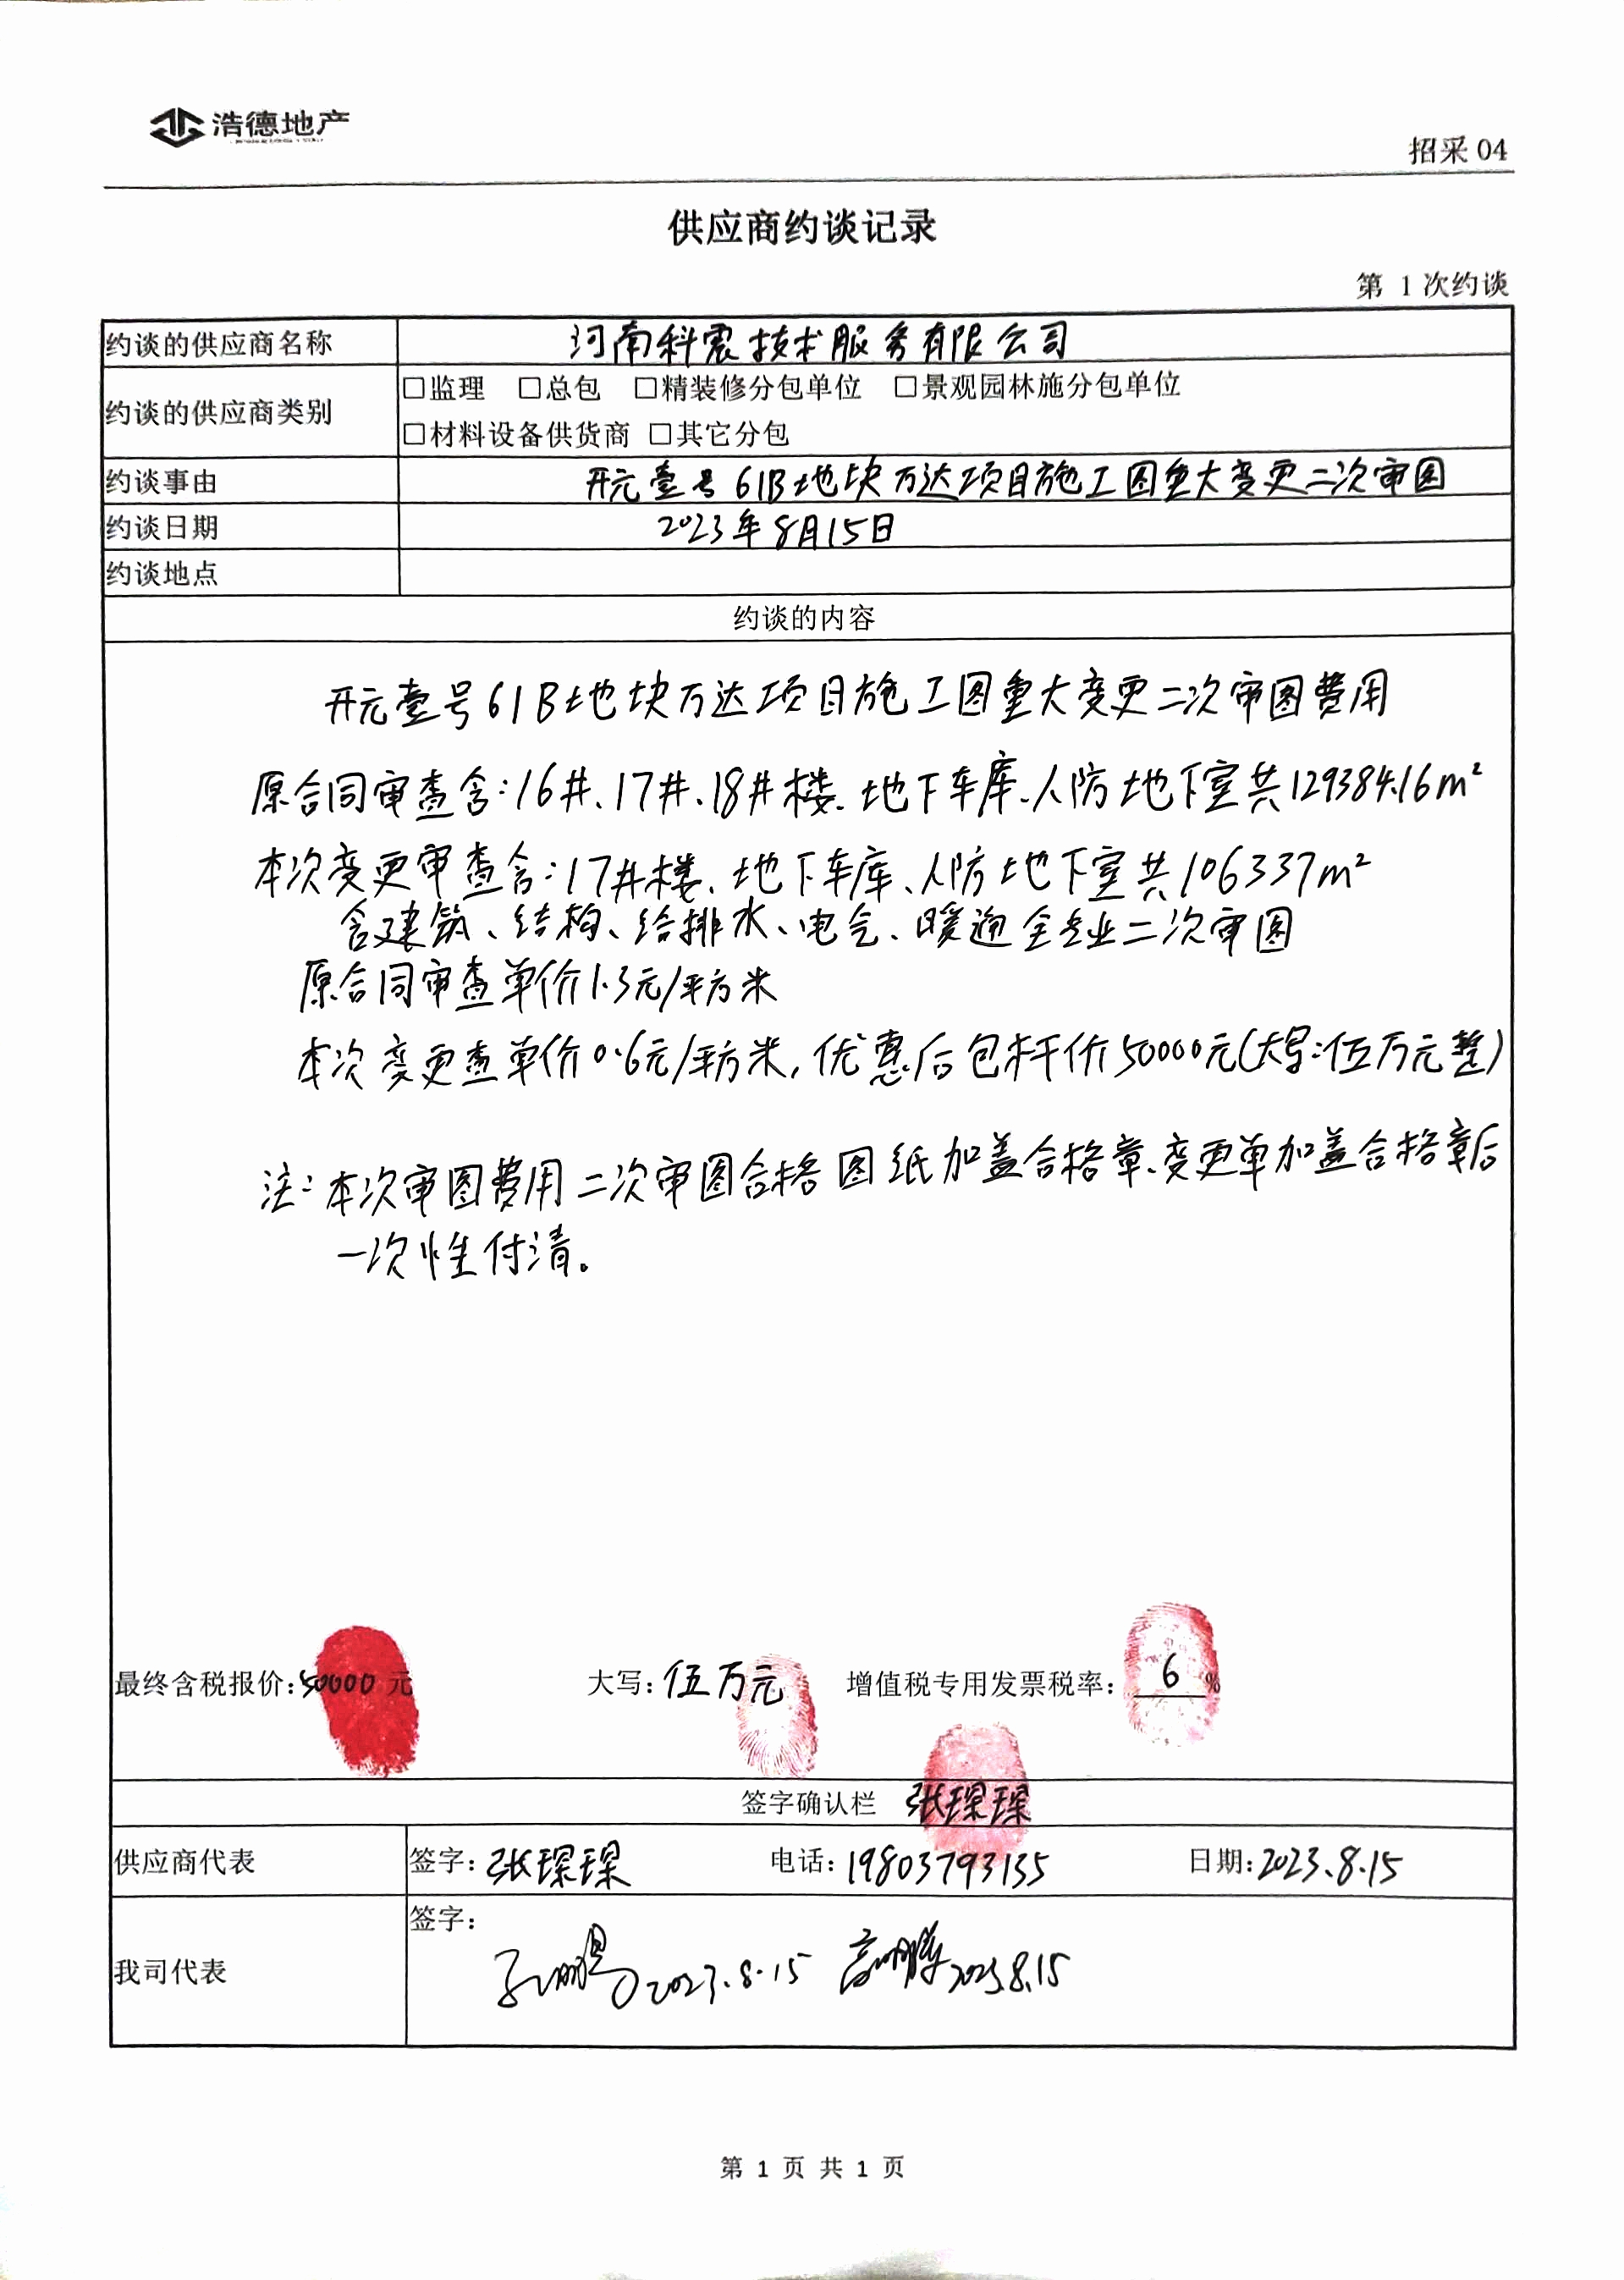 浩德地产
招采 04
供应商约谈记录
第 1 次约谈
约谈的供应商名称 河南科震技术服务有限公司
约谈的供应商类别 □监理 □总包 □精装修分包单位 □景观园林施分包单位
□材料设备供货商 □其它分包
约谈事由 开元壹号61B地块万达项目施工图重大变更二次审图
约谈日期 2023年8月15日
约谈地点
约谈的内容
开元壹号61B地块万达项目施工图重大变更二次审图费用
原合同审查含:16#、17#、18#楼、地下车库、人防地下室共129384.16m²
本次变更审查含:17#楼、地下车库、人防地下室共106337m²
含建筑、结构、给排水、电气、暖通全专业二次审图
原合同审查单价1.3元/平方米
本次变更查单价0.6元/平方米,优惠后包杆价50000元(大写:伍万元整)
注:本次审图费用二次审图合格图纸加盖合格章、变更单加盖合格章后
一次性付清。
最终含税报价:50000 元 大写:伍万元 增值税专用发票税率: 6 %
签字确认栏 张琛琛
供应商代表 签字:张琛琛 电话:19803793135 日期:2023.8.15
我司代表 签字:
2023.8.15 2023.8.15
第 1 页 共 1 页